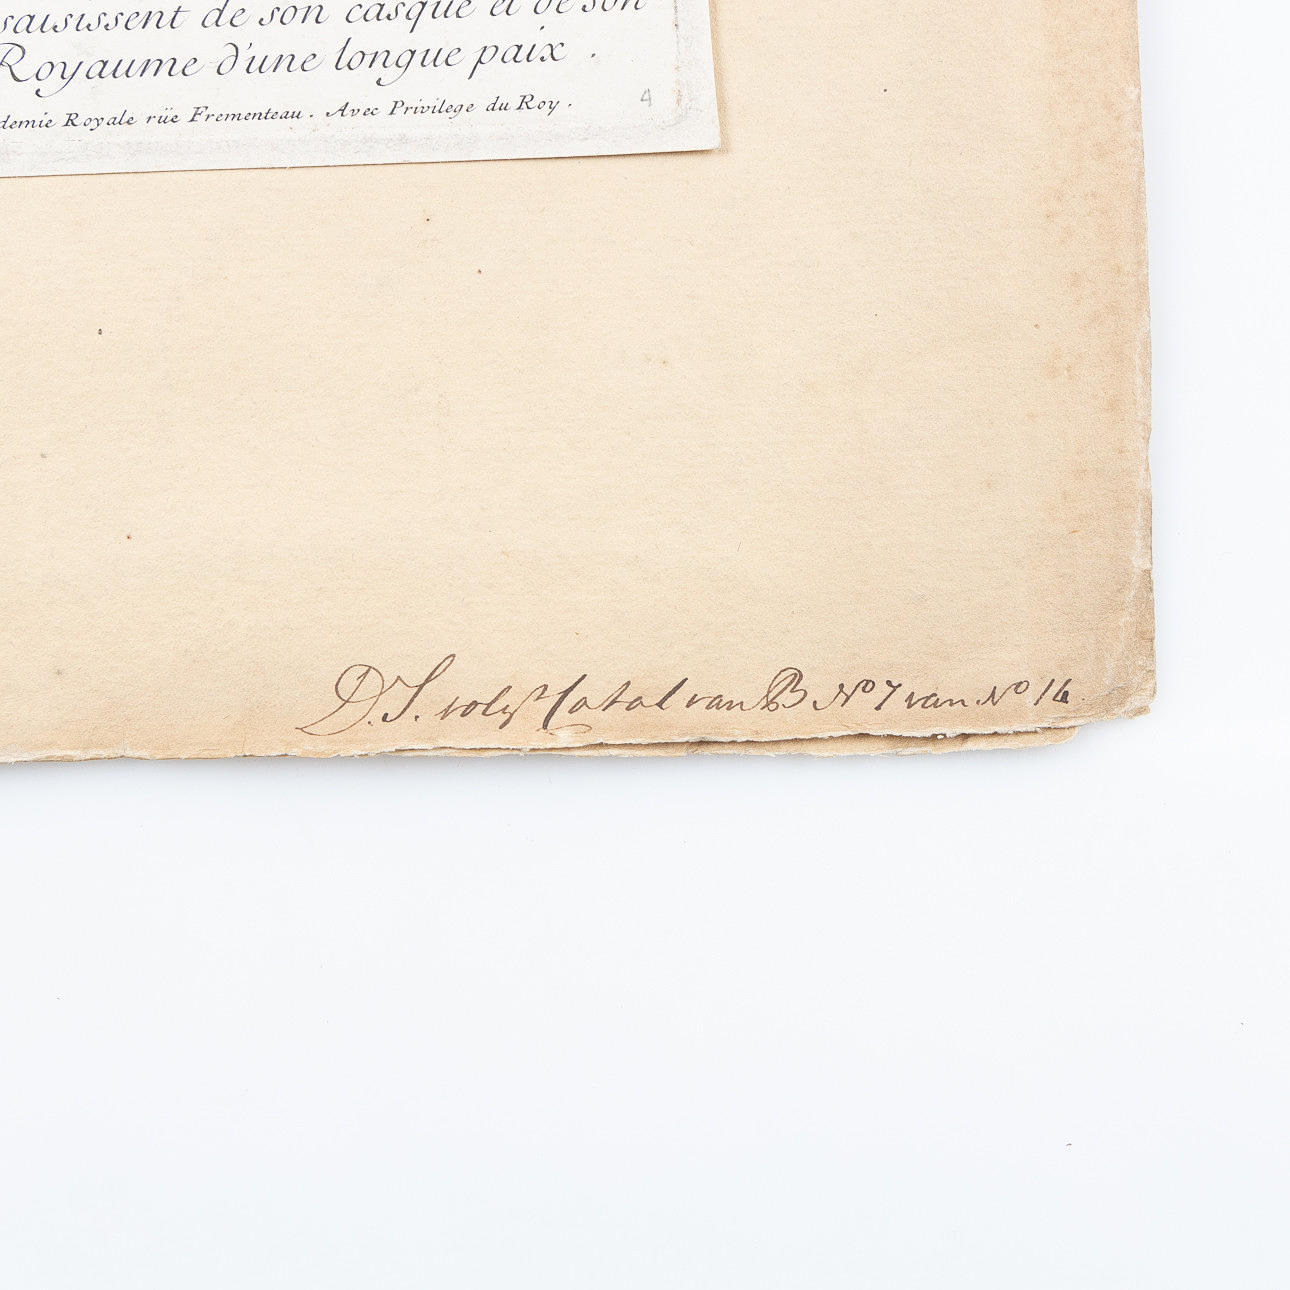 saisissent de son casque et de son
Royaume d'une longue paix .
demie Royale rüe Frementeau . Avec Privilege du Roy .
4
D. S. volgt Catal van B N° 7 van N° 16